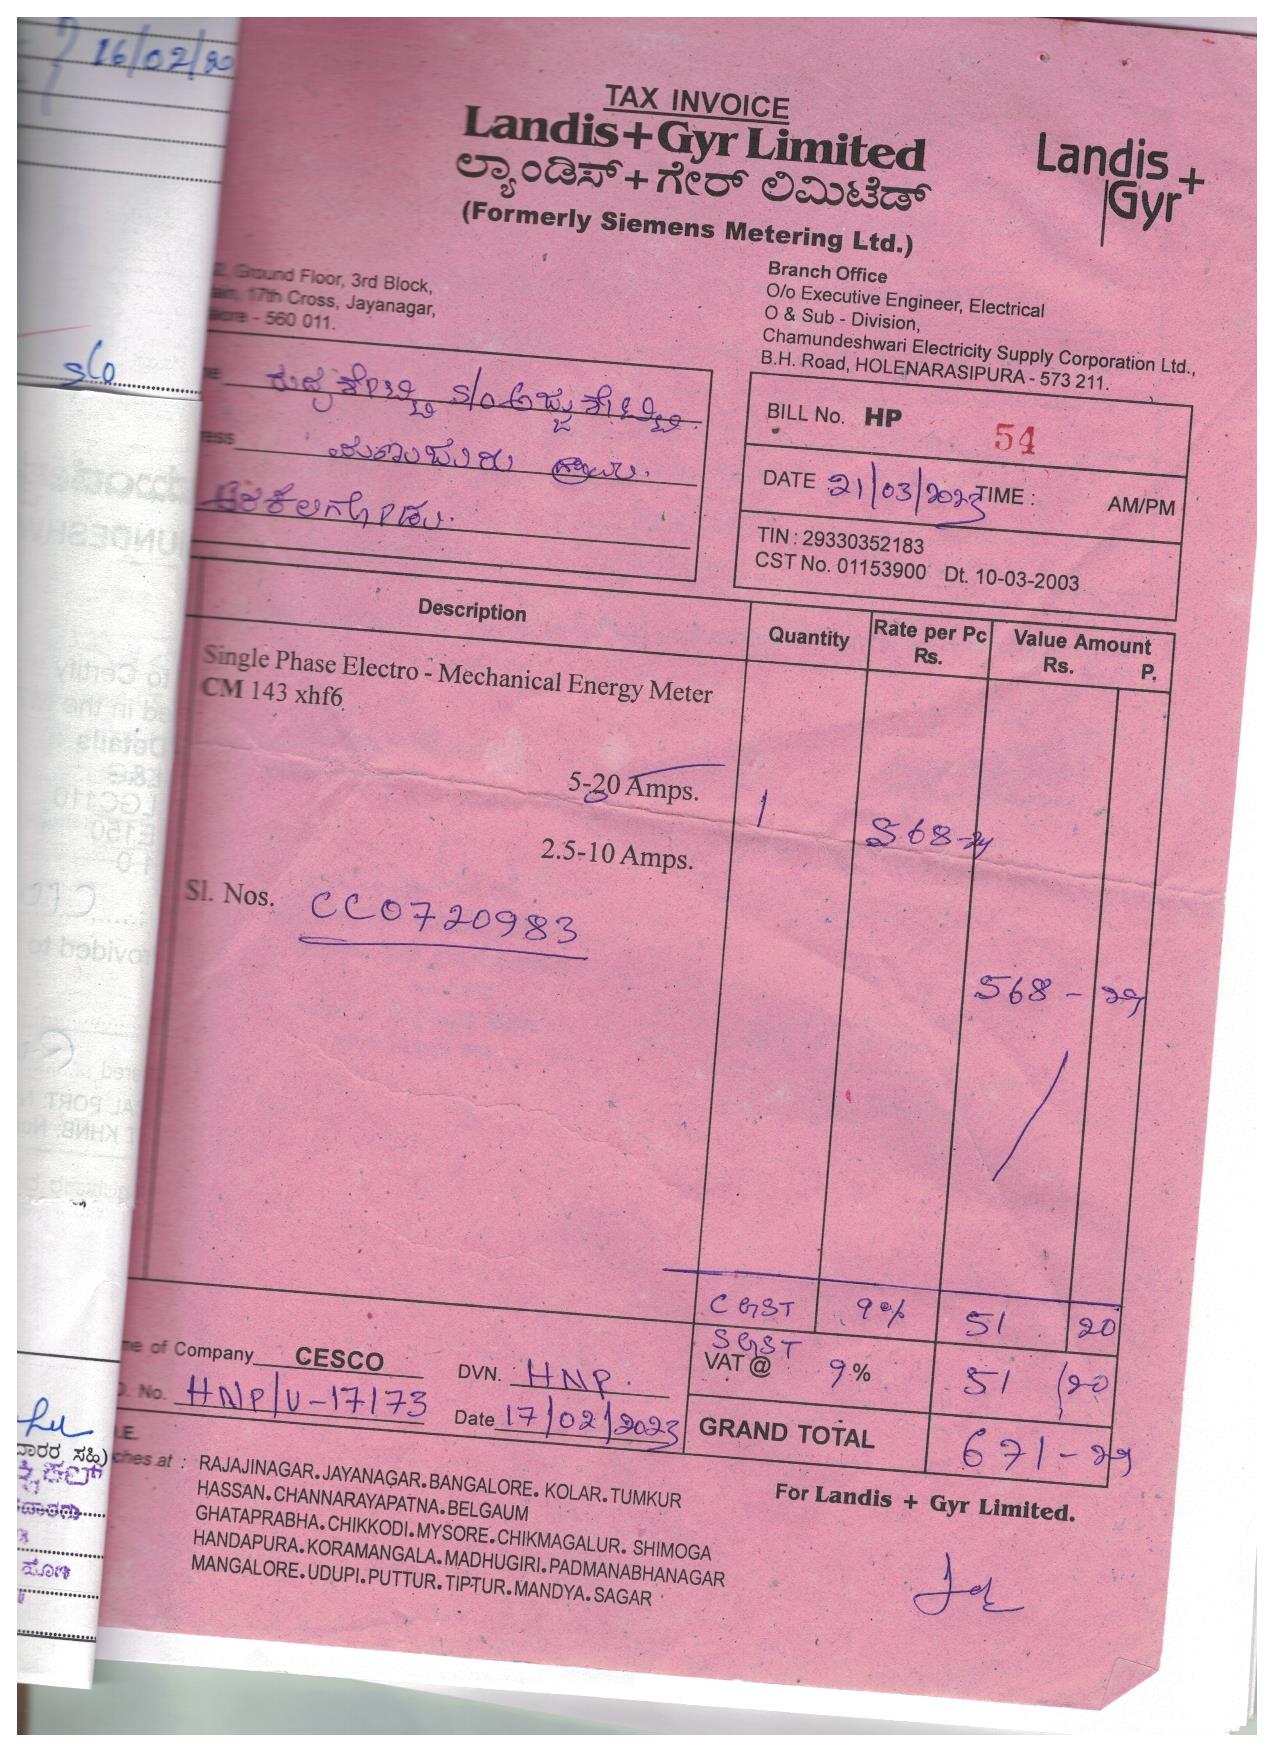 16/02/20
TAX INVOICE
Landis+Gyr Limited
ಲ್ಯಾಂಡಿಸ್+ಗೇರ್ ಲಿಮಿಟೆಡ್
(Formerly Siemens Metering Ltd.)
Landis +
Gyr
Ground Floor, 3rd Block,
17th Cross, Jayanagar,
560 011.
Branch Office
O/o Executive Engineer, Electrical
O & Sub - Division,
Chamundeshwari Electricity Supply Corporation Ltd.,
B.H. Road, HOLENARASIPURA - 573 211.
S/o
BILL No. HP 54
DATE 21/03/2023 TIME : AM/PM
TIN : 29330352183
CST No. 01153900 Dt. 10-03-2003
Description Quantity Rate per Pc Rs. Value Amount Rs. P.
Single Phase Electro - Mechanical Energy Meter
CM 143 xhf6
5-20 Amps. 1 568-29
2.5-10 Amps.
Sl. Nos. CC0720983
568 - 29
CGST 9% 51 20
SGST
VAT @ 9 % 51 20
GRAND TOTAL 671-29
of Company CESCO DVN. HNP.
No. HNP/U-17173 Date 17/02/2023
at : RAJAJINAGAR. JAYANAGAR. BANGALORE. KOLAR. TUMKUR
HASSAN. CHANNARAYAPATNA. BELGAUM
GHATAPRABHA. CHIKKODI. MYSORE. CHIKMAGALUR. SHIMOGA
HANDAPURA. KORAMANGALA. MADHUGIRI. PADMANABHANAGAR
MANGALORE. UDUPI. PUTTUR. TIPTUR. MANDYA. SAGAR
For Landis + Gyr Limited.